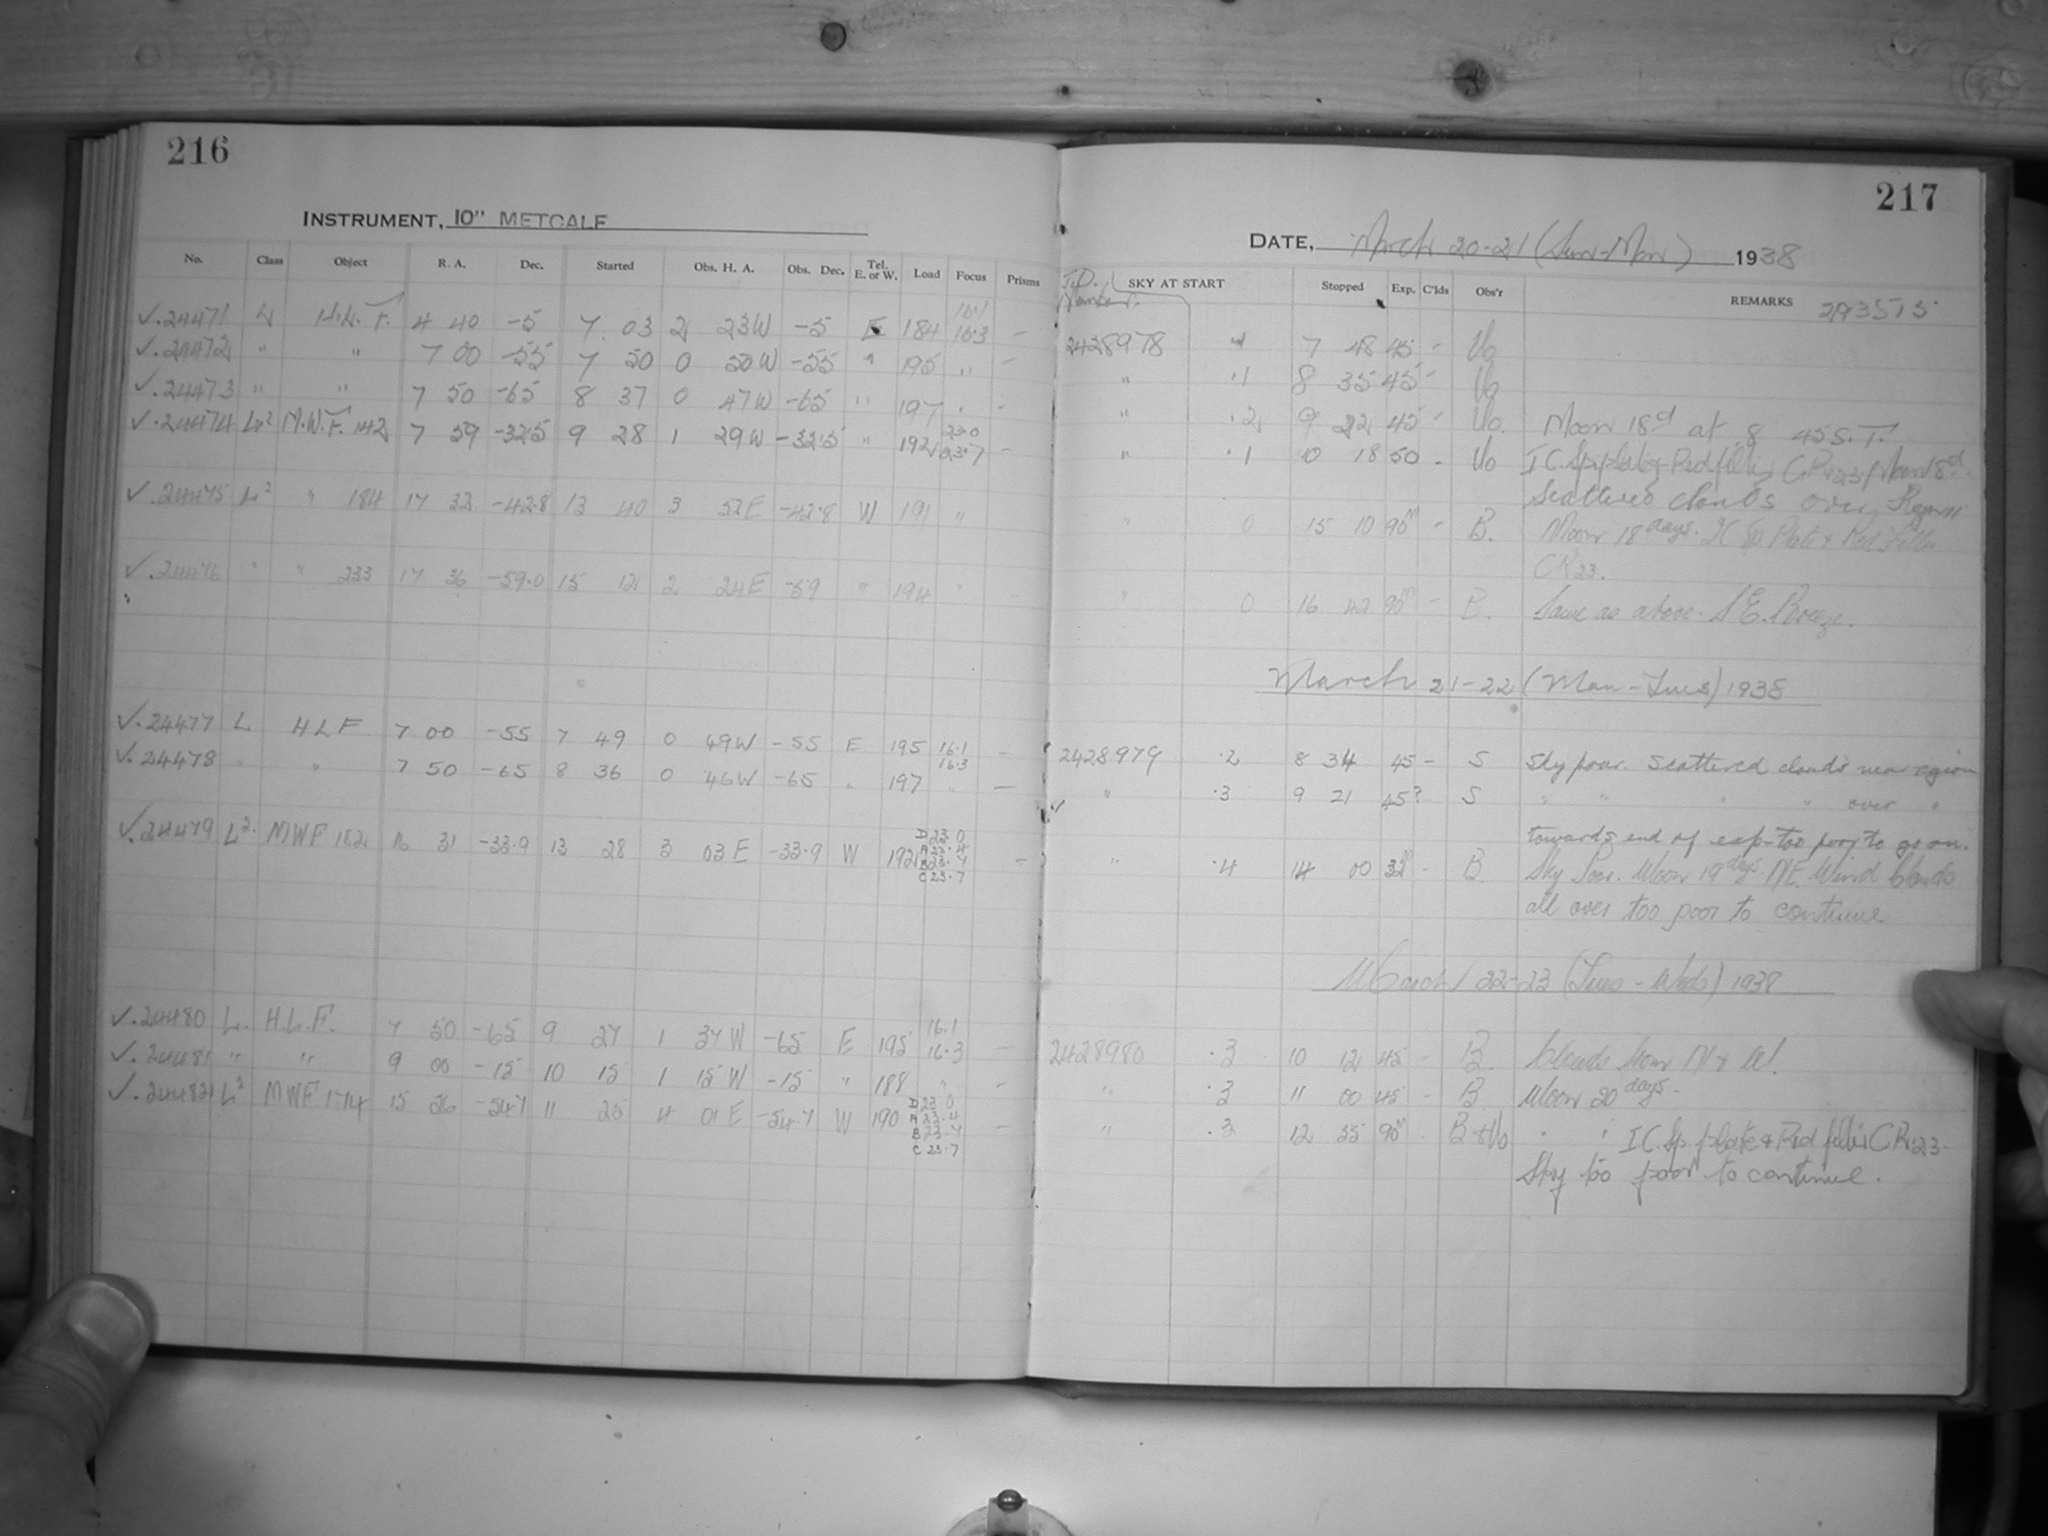 216
INSTRUMENT, 10" METCALF
No. Class Object R. A. Dec. Started Obs. H. A. Obs. Dec. Tel. E. or W. Load Focus Prisms
✓.24471 L H.L.F. 4 40 -5 7 03 2 23W -5 E 184 16.1 16.3 -
✓.24472 " " 7 00 -55 7 50 0 50W -55 " 195 " -
✓.24473 " " 7 50 -65 8 37 0 47W -65 " 197 " -
✓.24474 L² M.W.F. 142 7 59 -32.5 9 28 1 29W -32.5 " 192 23.0 23.7 -
✓.24475 L² " 184 17 33 -42.8 13 40 3 53E -42.8 W 191 "
✓.24476 " " 233 17 36 -59.0 15 12 2 24E -59 " 194 "
✓.24477 L HLF 7 00 -55 7 49 0 49W -55 E 195 16.1 16.3 -
✓.24478 " " 7 50 -65 8 36 0 46W -65 " 197 " -
✓.24479 L². MWF 152 16 31 -33.9 13 28 3 03E -33.9 W 192 D 23.0 A 23.4 B 23.7 C 23.7 -
✓.24480 L. H.L.F. 7 50 -65 9 27 1 37W -65 E 195 16.1 16.3 -
✓.24481 " " 9 00 -15 10 15 1 15W -15 " 188 " -
✓.24482 L² MWF 174 15 26 -54.7 11 25 4 01E -54.7 W 190 D 23.0 A 23.4 B 23.7 C 23.7 -
217
DATE, March 20-21 (Sun-Mon) 1938
J.D. Number. SKY AT START Stopped Exp. C'lds Obs'r REMARKS
2428978 7 48 45 - Uo
" .1 8 35 45 - Uo
" .2 9 22 45 - Uo. Moon 18d at 8 45 S.T.
" .1 10 18 50 - Uo I C. Sp. plate & Red filter CR23. Moon 18d.
Scattered clouds over Region
" 0 15 10 90m - B. Moon 18 days. I C Sp Plate & Red Filter
CR 23.
" 0 16 42 90m - B. Same as above. S E. Breeze.
March 21-22 (Mon-Tues) 1938
2428979 .2 8 34 45 - S Sky poor. Scattered clouds near region
" .3 9 21 45? S " " " " over "
towards end of exp - too poor to go on.
" .4 14 00 32m - B. Sky Poor. Moon 19 days. NE. Wind clouds
all over too poor to continue
March 22-23 (Tues - Weds) 1938
2428980 .3 10 12 45 - B. Clouds from N & W.
" .3 11 00 45 - B Moon 20 days.
" .3 12 55 90m B+Uo " " I C. Sp. plate & Red filter CR.23.
Sky too poor to continue.